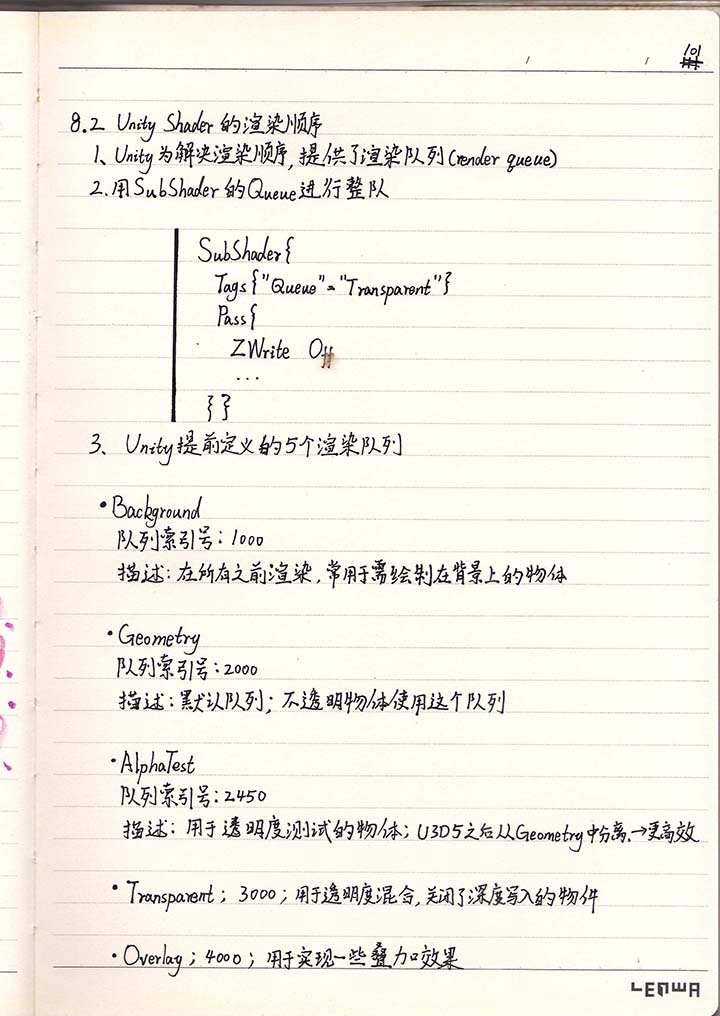 101
#
8.2 Unity Shader的渲染顺序
1、Unity为解决渲染顺序,提供了渲染队列(render queue)
2.用SubShader的Queue进行整队
SubShader{
Tags{"Queue"="Transparent"}
Pass{
ZWrite Off
...
}}
3、Unity提前定义的5个渲染队列
•Background
队列索引号:1000
描述:在所有之前渲染,常用于需绘制在背景上的物体
•Geometry
队列索引号:2000
描述:默认队列;不透明物体使用这个队列
•AlphaTest
队列索引号:2450
描述:用于透明度测试的物体;U3D5之后从Geometry中分离.→更高效
•Transparent;3000;用于透明度混合,关闭了深度写入的物件
•Overlay;4000;用于实现一些叠加效果